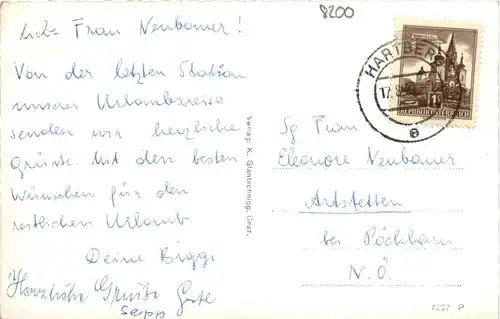 8200
Liebe Frau Neubauer!
Von der letzten Station
unserer Urlaubsreise
senden wir herzliche
Grüsse. Mit den besten
Wünschen für den
restlichen Urlaub
Deine Biggi
Herzliche Grüße
Sepp
Verlag: K. Glantschnigg, Graz.
HARTBERG
17.8.
e
REPUBLIK ÖSTERREICH
Sg Frau
Eleonore Neubauer
Artstetten
bei Pöchlarn
N.Ö.
P